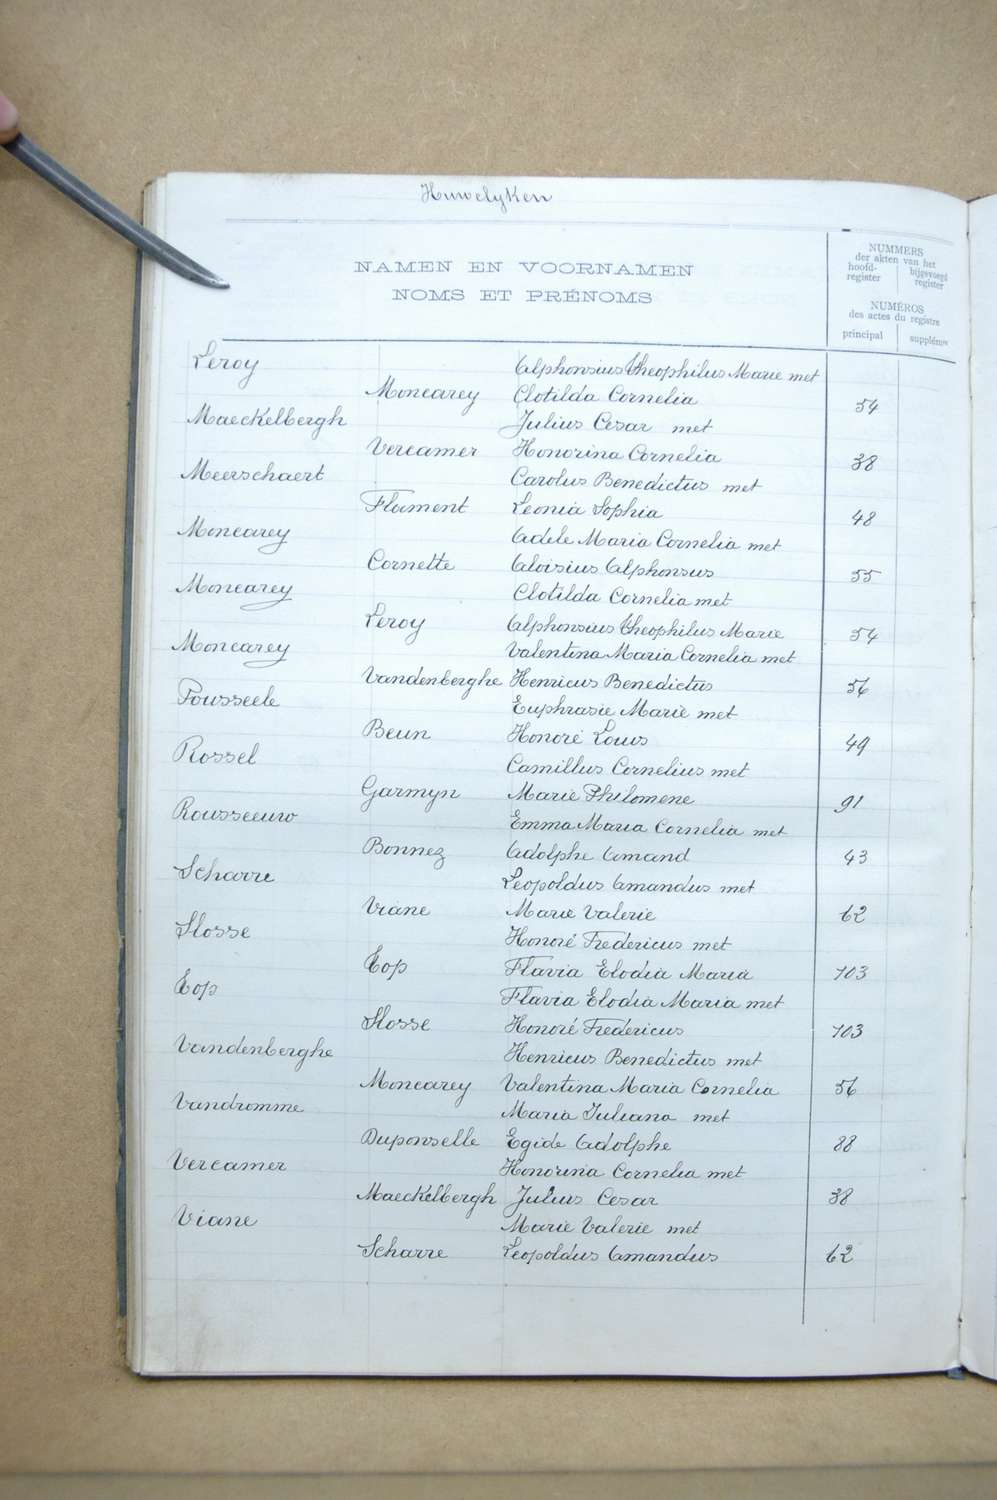 Huwelyken
NAMEN EN VOORNAMEN
NOMS ET PRÉNOMS
NUMMERS
der akten van het
hoofd-register
bijgevoegd register
NUMÉROS
des actes du registre
principal
supplém
Leroy Alphonsius Theophilus Marie met
Moncarey Clotilda Cornelia 54
Maeckelbergh Julius Cesar met
Vercamer Honorina Cornelia 38
Meerschaert Carolus Benedictus met
Flament Leonia Sophia 48
Moncarey Adele Maria Cornelia met
Cornette Aloisius Alphonsus 55
Moncarey Clotilda Cornelia met
Leroy Alphonsius Theophilus Marie 54
Moncarey Valentina Maria Cornelia met
Vandenberghe Henricus Benedictus 56
Pousseele Euphrasie Marie met
Beun Honoré Louis 49
Rossel Camillus Cornelius met
Garmyn Marie Philomene 91
Rousseeuw Emma Maria Cornelia met
Bonnez Adolphe Amand 43
Scharre Leopoldus Amandus met
Viane Marie Valerie 62
Slosse Honoré Fredericus met
Top Flavia Elodia Maria 103
Top Flavia Elodia Maria met
Slosse Honoré Fredericus 103
Vandenberghe Henricus Benedictus met
Moncarey Valentina Maria Cornelia 56
Vandromme Maria Juliana met
Duponselle Egide Adolphe 88
Vercamer Honorina Cornelia met
Maeckelbergh Julius Cesar 38
Viane Marie Valerie met
Scharre Leopoldus Amandus 62